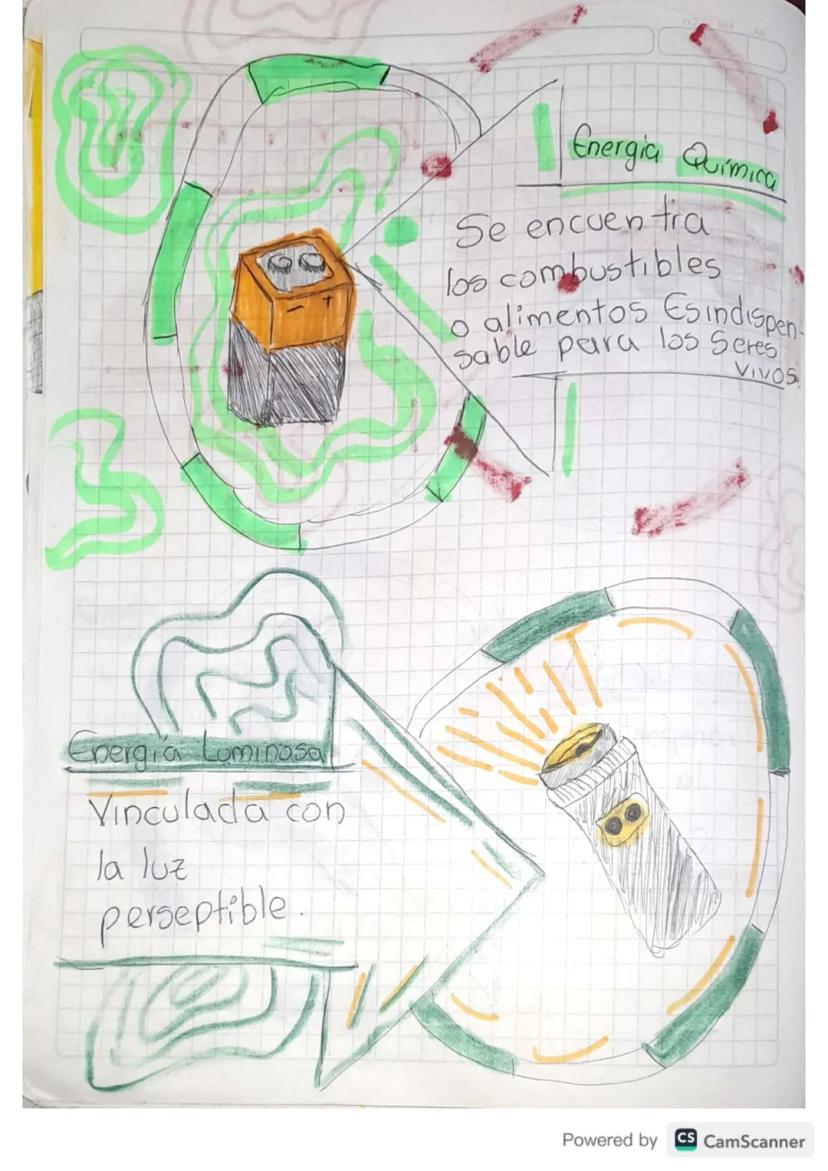 Energia Química
Se encuentra
los combustibles
o alimentos Es indispen-
sable para los Seres
vivos.
Energía Luminosa
Vinculada con
la luz
perseptible.
Powered by CS CamScanner